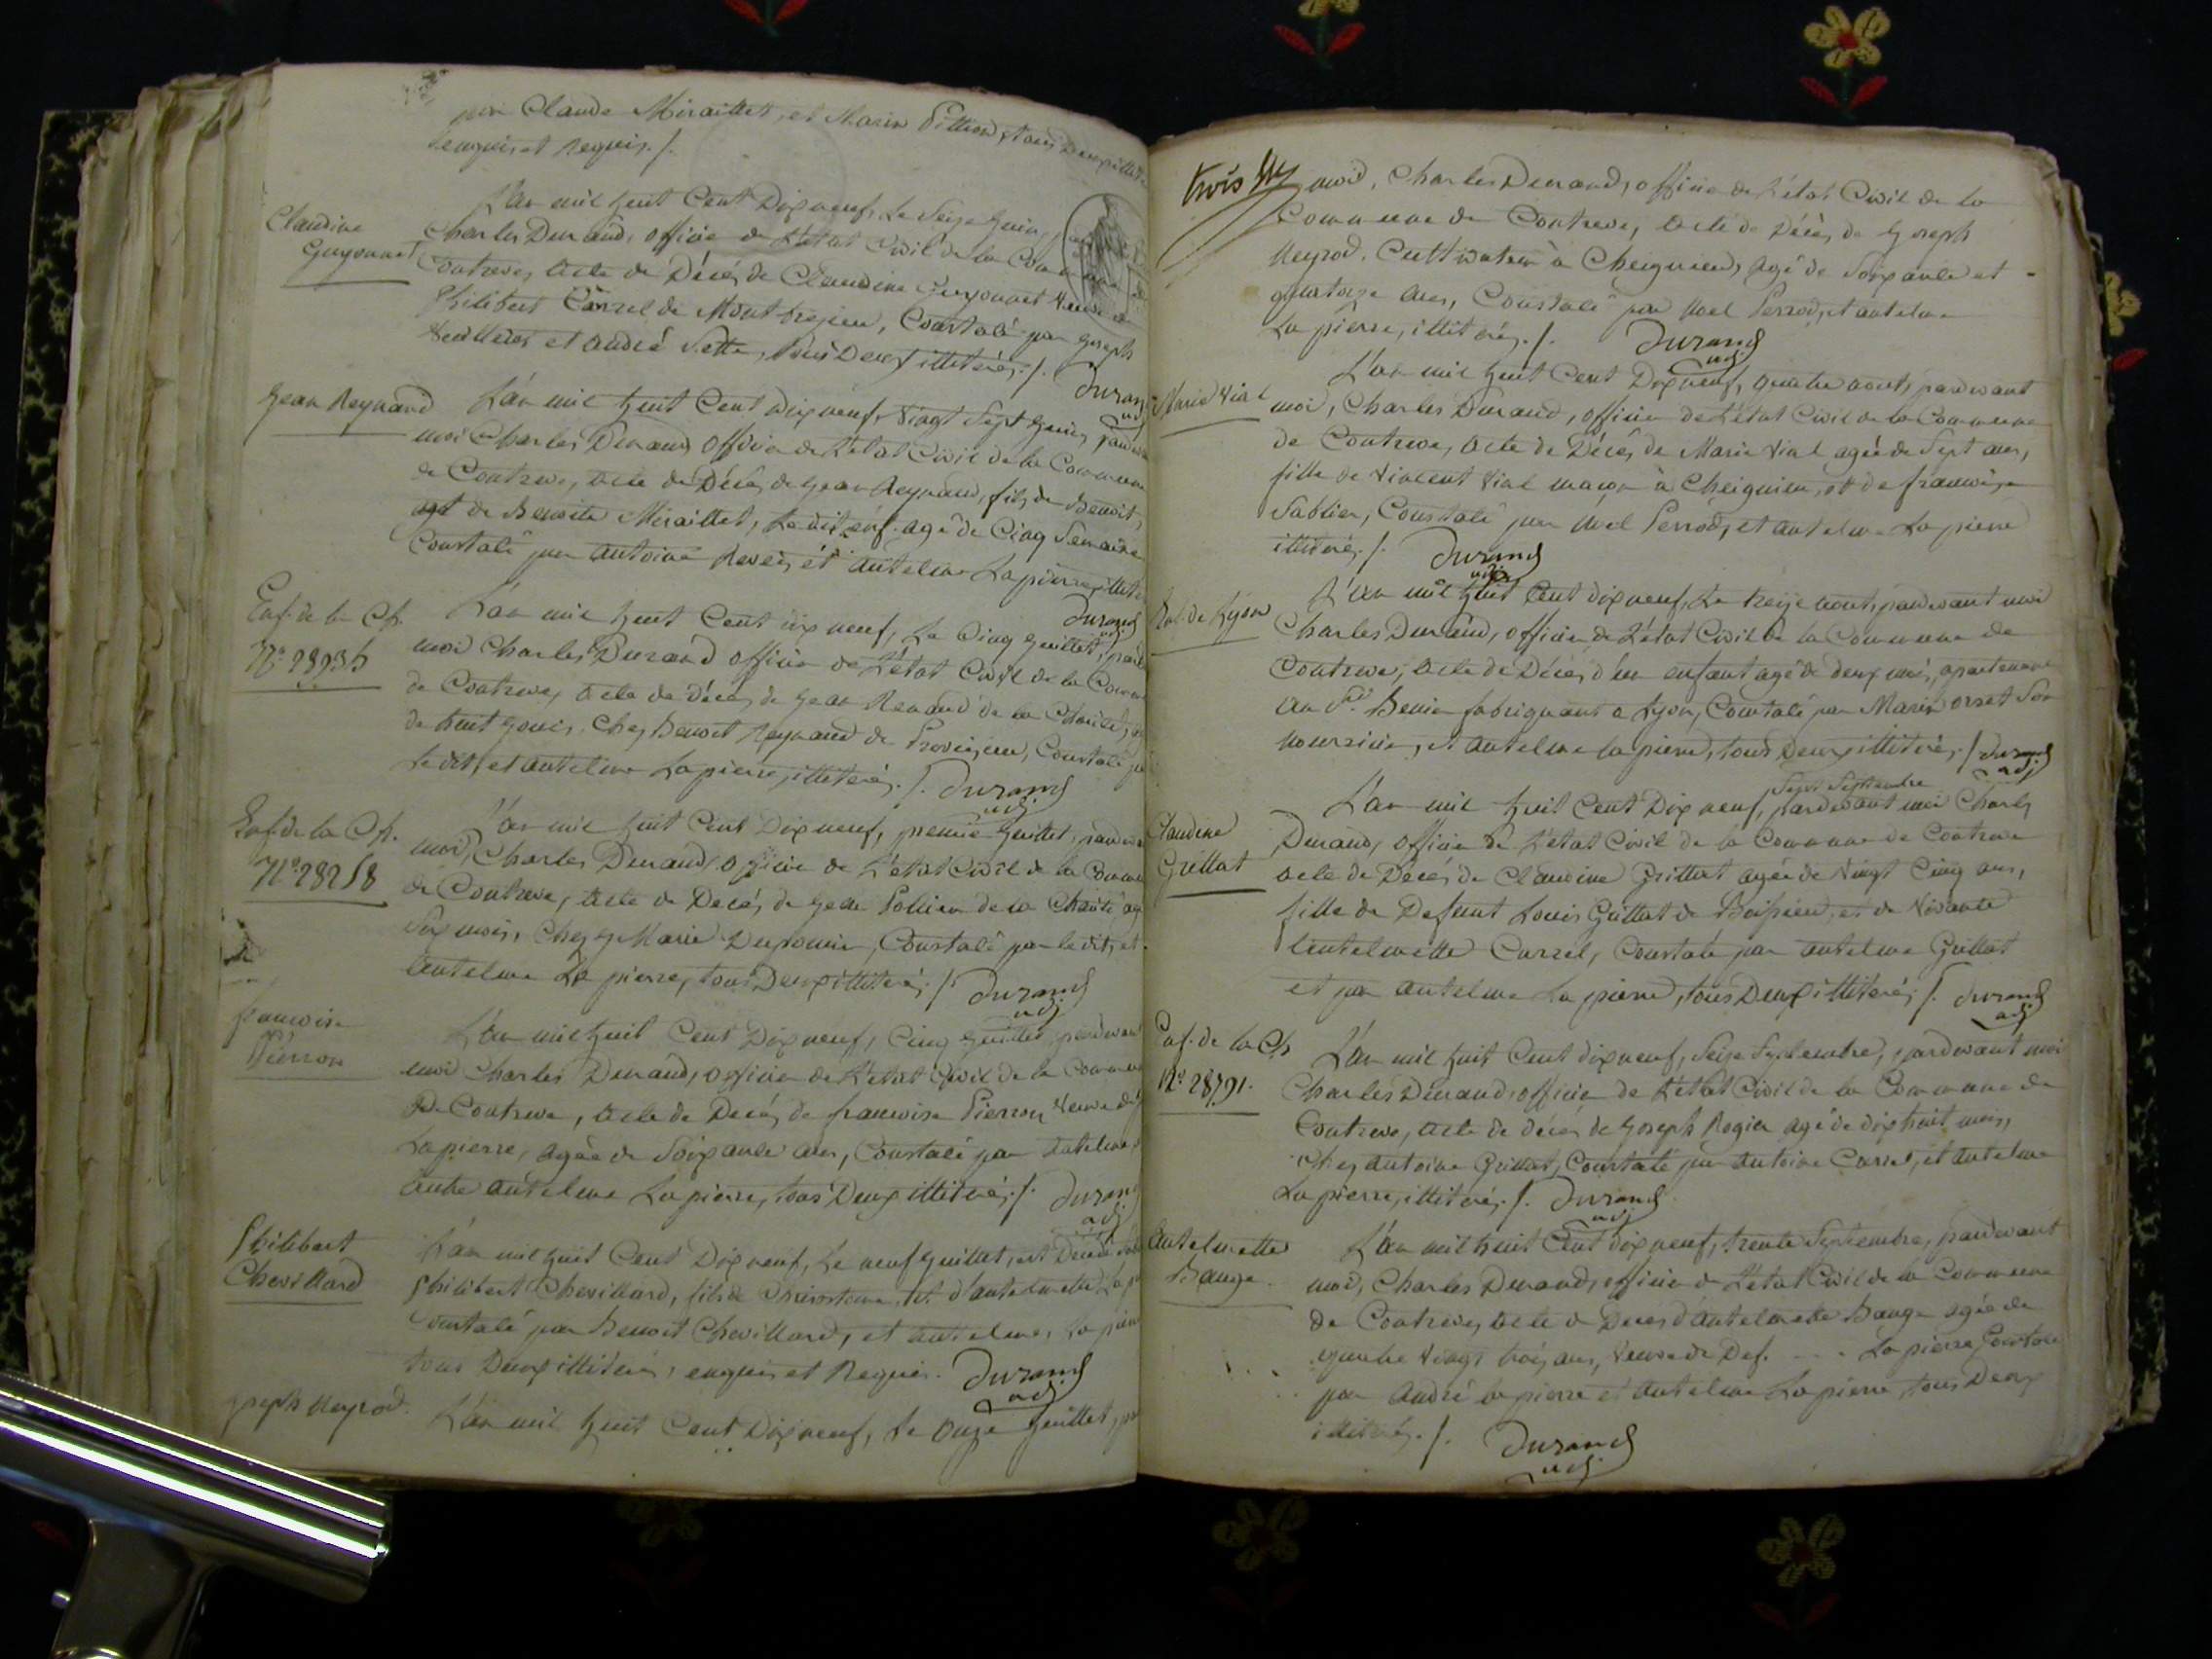 par Claude Miraillet, et Marin Pillion, tous Deux illit
enquis et Requis ./.
Claudine
Guyonnet
L'an mil huit Cent Dix neuf, Le Seize Juin,
Charles Durand, officier de L'état Civil de la Commune
Contrevoz, acte de Décès de Claudine Guyonnet Veuve
Philibert Carrel de Montbrezieu, Constaté par Joseph
et André Sette, tous Deux illiterés ./.
Durand
adj
Jean Reynaud
L'an mil huit Cent Dix neuf, Vingt Sept Juin, pardevant
moi Charles Durand officier de L'état Civil de la Commune
de Contrevoz, acte de Décès de Jean Reynaud, fils de Benoit,
et de Benoite Miraillet, Ledit enf. agé de Cinq Semaine
Constaté par Antoine et Antelme Lapierre, illite
Durand
Enf. de la Ch.
L'an mil huit Cent dix neuf, Le Cinq Juillet, parde
moi Charles Durand officier de L'état Civil de la Comm
de Contrevoz, acte de Décès de Jean Renaud de la Charité,
de huit jours, Chez Benoit Reynaud de Preveyzieu, Constaté pa
Ledit, et Antelme Lapierre, illiterés ./. Durand
adj.
Enf. de la Ch.
N° 28258
L'an mil huit Cent Dix neuf, premier Juillet, pardeva
moi, Charles Durand, officier de L'état Civil de la Comm
de Contrevoz, acte de Décès de Jean Pollien de la Charité ag
Six mois, Chez Marie Duponnier, Constaté par ledit, et
Antelme La pierre, tous Deux illiterés ./. Durand
adj
françoise
Pierron
L'an mil huit Cent Dix neuf, Cinq Juillet, pardevan
moi Charles Durand, officier de L'état Civil de la Commun
De Contrevoz, acte de Décès de françoise Pierron Veuve de
Lapierre, agée de Soixante ans, Constaté par Antelme,
autre Antelme Lapierre, tous Deux illiterés ./. Durand
adj
Philibert
Chevillard
L'an mil huit Cent Dix neuf, Le neuf Juillet, est Décédé
Philibert Chevillard, fils de et d'Antelmette La p
Constaté par Benoit Chevillard, et Antelme La pierre
tous Deux illiterés, enquis et Requis. Durand
adj
Joseph Neyrod.
L'an mil huit Cent Dix neuf, Le Onze Juillet, pa
trois
moi, Charles Durand, officier de L'état Civil de la
Commune de Contrevoz, acte de Décès de Joseph
Neyrod, Cultivateur à Cheignieu, agé de Soixante et
quatorze ans, Constaté par Noel Perrod, et Antelme
La pierre, illiterés ./. Durand
adj.
Marie Vial
L'an mil huit Cent Dix neuf, quatre aout, pardevant
moi, Charles Durand, officier de L'état Civil de la Commune
de Contrevoz, acte de Décès de Marie Vial agée de Sept ans,
fille de Vincent Vial maçon à Cheignieu, et de françoise
Sablier, Constaté par Noel Perrod, et Antelme La pierre
illiterés ./. Durand
adj
Enf. de Lyon
L'an mil huit Cent dix neuf, Le treize aout, pardevant moi
Charles Durand, officier de L'état Civil de la Commune de
Contrevoz, acte de Décès d'un enfant agé de deux mois, apartenant
au Sr. Benier fabriquant a Lyon, Constaté par Marin orset Son
nourricier, et Antelme La pierre, tous Deux illiterés ./. Durand
adj
Claudine
Grillat
Sept Septembre
L'an mil huit Cent Dix neuf, pardevant moi Charles
Durand, officier de L'état Civil de la Commune de Contrevoz
acte de Décès de Claudine Grillat agée de Vingt Cinq ans,
fille de Defunt Louis Grillat de Boissieu, et de Vivante
Antelmette Carrel, Constaté par Antelme Grillat
et par Antelme La pierre, tous Deux illiterés ./. Durand
adj
Enf. de la Ch
N° 28791.
L'an mil huit Cent dix neuf, Seize Septembre, pardevant moi
Charles Durand, officier de L'état Civil de la Commune de
Contrevoz, acte de décès de Joseph Regier agé de dix huit mois,
Chez Antoine Grillat, Constaté par Antoine Carrel, et Antelme
La pierre, illiterés ./. Durand
adj
Antelmette
Bauge
L'an mil huit Cent dix neuf, trente Septembre, pardevant
moi, Charles Durand, officier de L'état Civil de la Commune
de Contrevoz, acte de Décès d'Antelmette Bauge agée de
quatre Vingt trois ans, Veuve de Def. - - - La pierre, Constaté
par André La pierre et Antelme La pierre, tous Deux
illiterés ./. Durand
adj.